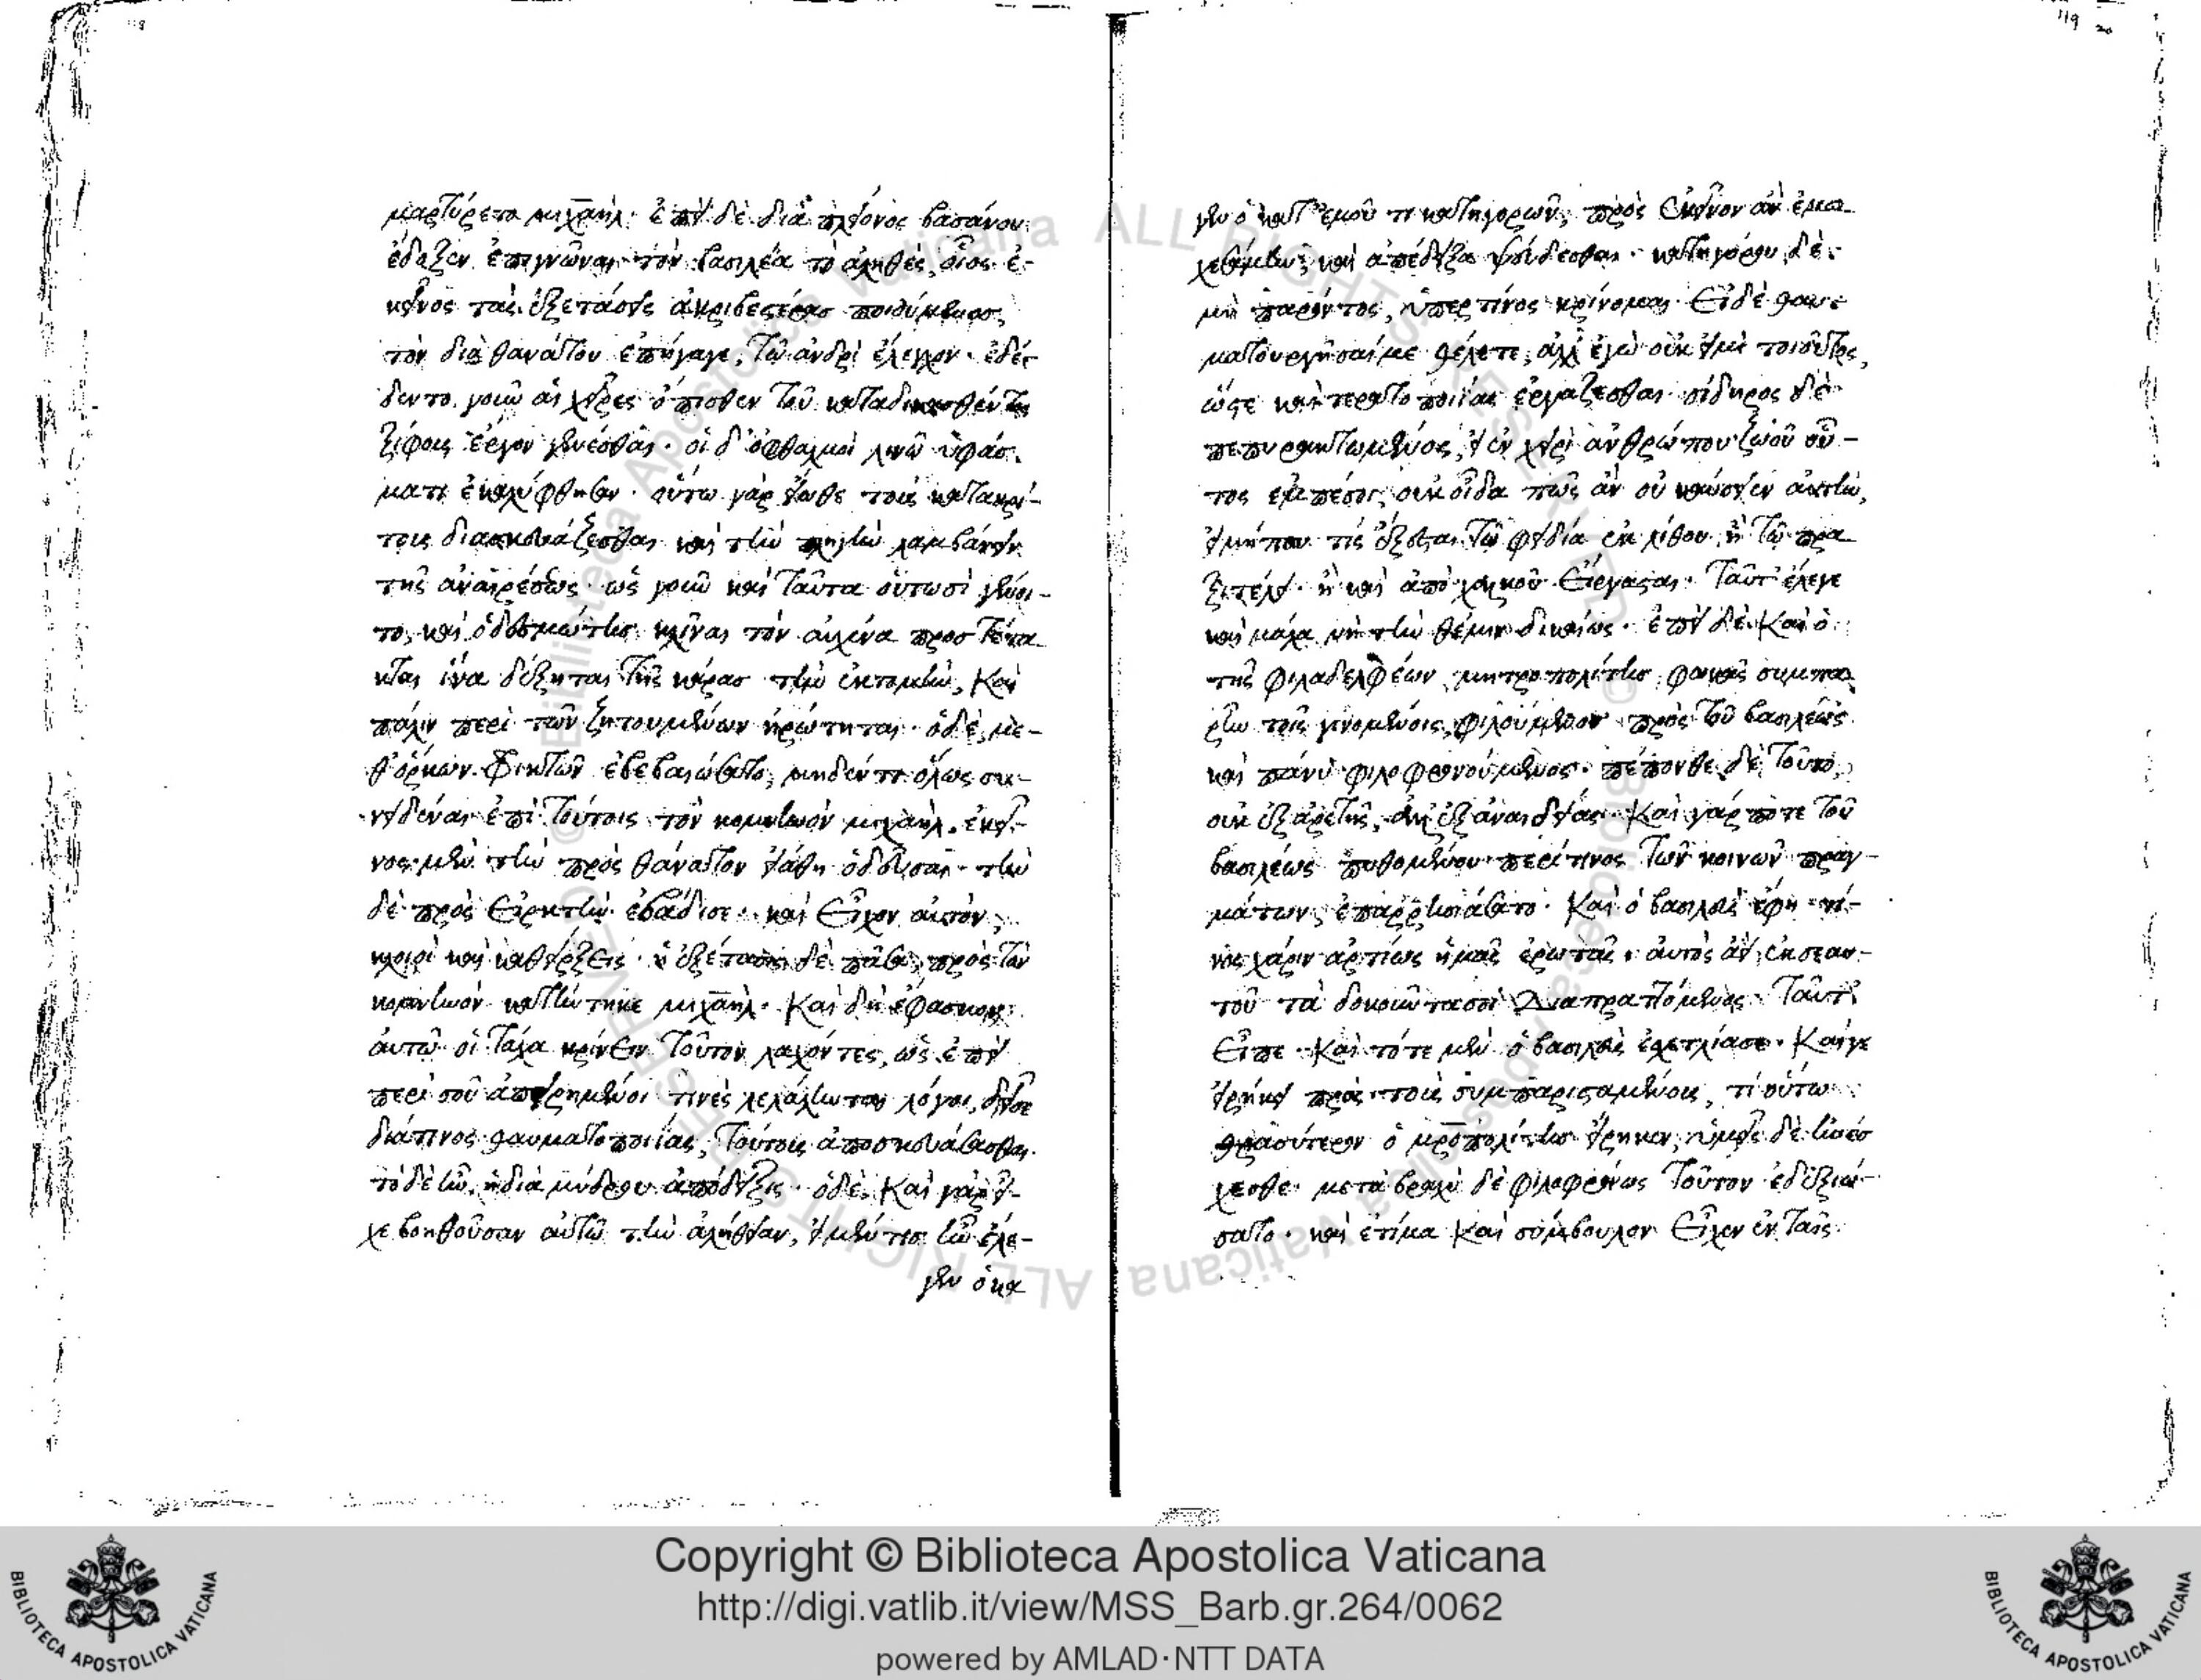 119
μαρτύρετο μιχαὴλ· ἐπεὶ δὲ διὰ πλείονος βασάνου
ἔδοξεν ἐπιγνῶναι τὸν βασιλέα τὸ ἀληθὲς, οἷος ἐ-
κεῖνος τὰς ἐξετάσεις ἀκριβεστέρας ποιούμενος,
τὸν διὰ θανάτου ἐπήγαγε, τῷ ἀνδρὶ ἔλεγχον· ἐδέ-
δεντο γοῦν αἱ χεῖρες ὄπισθεν τοῦ καταδικασθέντος
ξίφους ἔργον γενέσθαι· οἱ δ' ὀφθαλμοὶ λινῷ ὑφάσ-
ματι ἐκαλύφθησαν· οὕτω γὰρ εἴωθε τοὺς κατακρί-
τους διασκευάζεσθαι καὶ τὴν πληγὴν λαμβάνειν
τῆς ἀναιρέσεως· ὡς γοῦν καὶ ταῦτα οὑτωσὶ γένοι-
το, καὶ ὁ δεσμώτης κλῖναι τὸν αὐχένα προστέτα-
κται ἵνα δέξηται τῆς κάρας τὴν ἐκτομὴν, Καὶ
πάλιν περὶ τῶν ζητουμένων ἠρώτηται· ὁ δὲ, με-
θ' ὅρκων φρικτῶν ἐβεβαιώσατο, μηδέν τι ὅλως συ-
νειδέναι ἐπὶ τούτοις τὸν κομνηνὸν μιχαὴλ. ἐκεῖ-
νος μὲν τὴν πρὸς θάνατον εἰάθη ὁδεῦσαι· τὴν
δὲ πρὸς εἱρκτὴν ἐβάδισε· καὶ εἶχον αὐτὸν,
κλοιοὶ καὶ καθείρξεις· ἡ ἐξέτασις δὲ πᾶσα, πρὸς τὸν
κομνηνὸν κατήντηκε μιχαὴλ· Καὶ δὴ ἔφασκον
αὐτῷ οἱ τάχα κρίνειν τοῦτον λαχόντες, ὡς ἐπεὶ
περὶ σοῦ ἀπειρημένοι τινὲς λελάληνται λόγοι, δεῖ σε
διά τινος θαυματοποιίας, τούτους ἀποσκευάσασθαι.
τὸ δὲ ἦν, ἡ διὰ μύδρου ἀπόδειξις· ὁ δὲ, Καὶ γὰρ εἶ-
χε βοηθοῦσαν αὐτῷ τὴν ἀλήθειαν, εἰ μέν τις ἦν ἔλε-
γεν ὁ κα
119
γεν ὁ κατ' ἐμοῦ τι κατηγορῶν, πρὸς ἐκεῖνον ἂν ἐμα-
χεσάμην, καὶ ἀπέδειξα ψεύδεσθαι· κατηγόρου δὲ
μὴ παρόντος, ὑπὲρ τίνος κρίνομαι· Εἰ δὲ θαυ-
ματουργῆσαί με θέλετε, ἀλλ' ἐγὼ οὐκ εἰμὶ τοιοῦτος,
ὥστε καὶ τερατοποιίας ἐργάζεσθαι· σίδηρος δὲ
πεπυρακτωμένος, εἰ ἐν χειρὶ ἀνθρώπου ζῶου ὄν-
τος ἐμπέσοι, οὐκ οἶδα πῶς ἂν οὐ καύσειεν αὐτὴν,
εἰ μή που τίς ἔξεσται τῷ φειδίᾳ ἐκ λίθου, ἢ τῷ πρα-
ξιτέλει· ἢ καὶ ἀπὸ χαλκοῦ εἴργασται· Ταῦτ' ἔλεγε
καὶ μάλα νὴ τὴν θέμιν δικαίως· ἐπεὶ δὲ Καὶ ὁ
τῆς φιλαδελφέων μητροπολίτης φωκᾶς συμπα-
ρῆν τοῖς γινομένοις, φιλούμενος πρὸς τοῦ βασιλέως
καὶ πάνυ φιλοφρονούμενος· πέπονθε δὲ τοῦτο,
οὐκ ἐξ ἀρετῆς, ἀλλ' ἐξ ἀναιδείας· Καὶ γάρ ποτε τοῦ
βασιλέως πυθομένου περί τινος τῶν κοινῶν πραγ-
μάτων, ἐπαρρησιάσατο· Καὶ ὁ βασιλεὺς ἔφη τί-
νος χάριν ἀρτίως ἡμᾶς ἐρωτᾷς· αὐτὸς ἀεὶ ἐκ σεαυ-
τοῦ τὰ δοκοῦντα σοὶ διαπραττόμενος· Ταῦτ'
εἶπε· Καὶ τότε μὲν ὁ βασιλεὺς ἐσχετλίασε· Καί γε
εἰρήκει πρὸς τοὺς συμπαρισταμένους, τί οὕτω
θρασύτερον ὁ μροπολίτης εἴρηκεν, ὑμεῖς δὲ ἠνέσ-
χεσθε· μετὰ βραχὺ δὲ φιλοφρόνως τοῦτον ἐδεξιώ-
σατο· καὶ ἐτίμα Καὶ σύμβουλον εἶχεν ἐν ταῖς
Copyright © Biblioteca Apostolica Vaticana
http://digi.vatlib.it/view/MSS_Barb.gr.264/0062
powered by AMLAD·NTT DATA
BIBLIOTECA APOSTOLICA VATICANA
BIBLIOTECA APOSTOLICA VATICANA